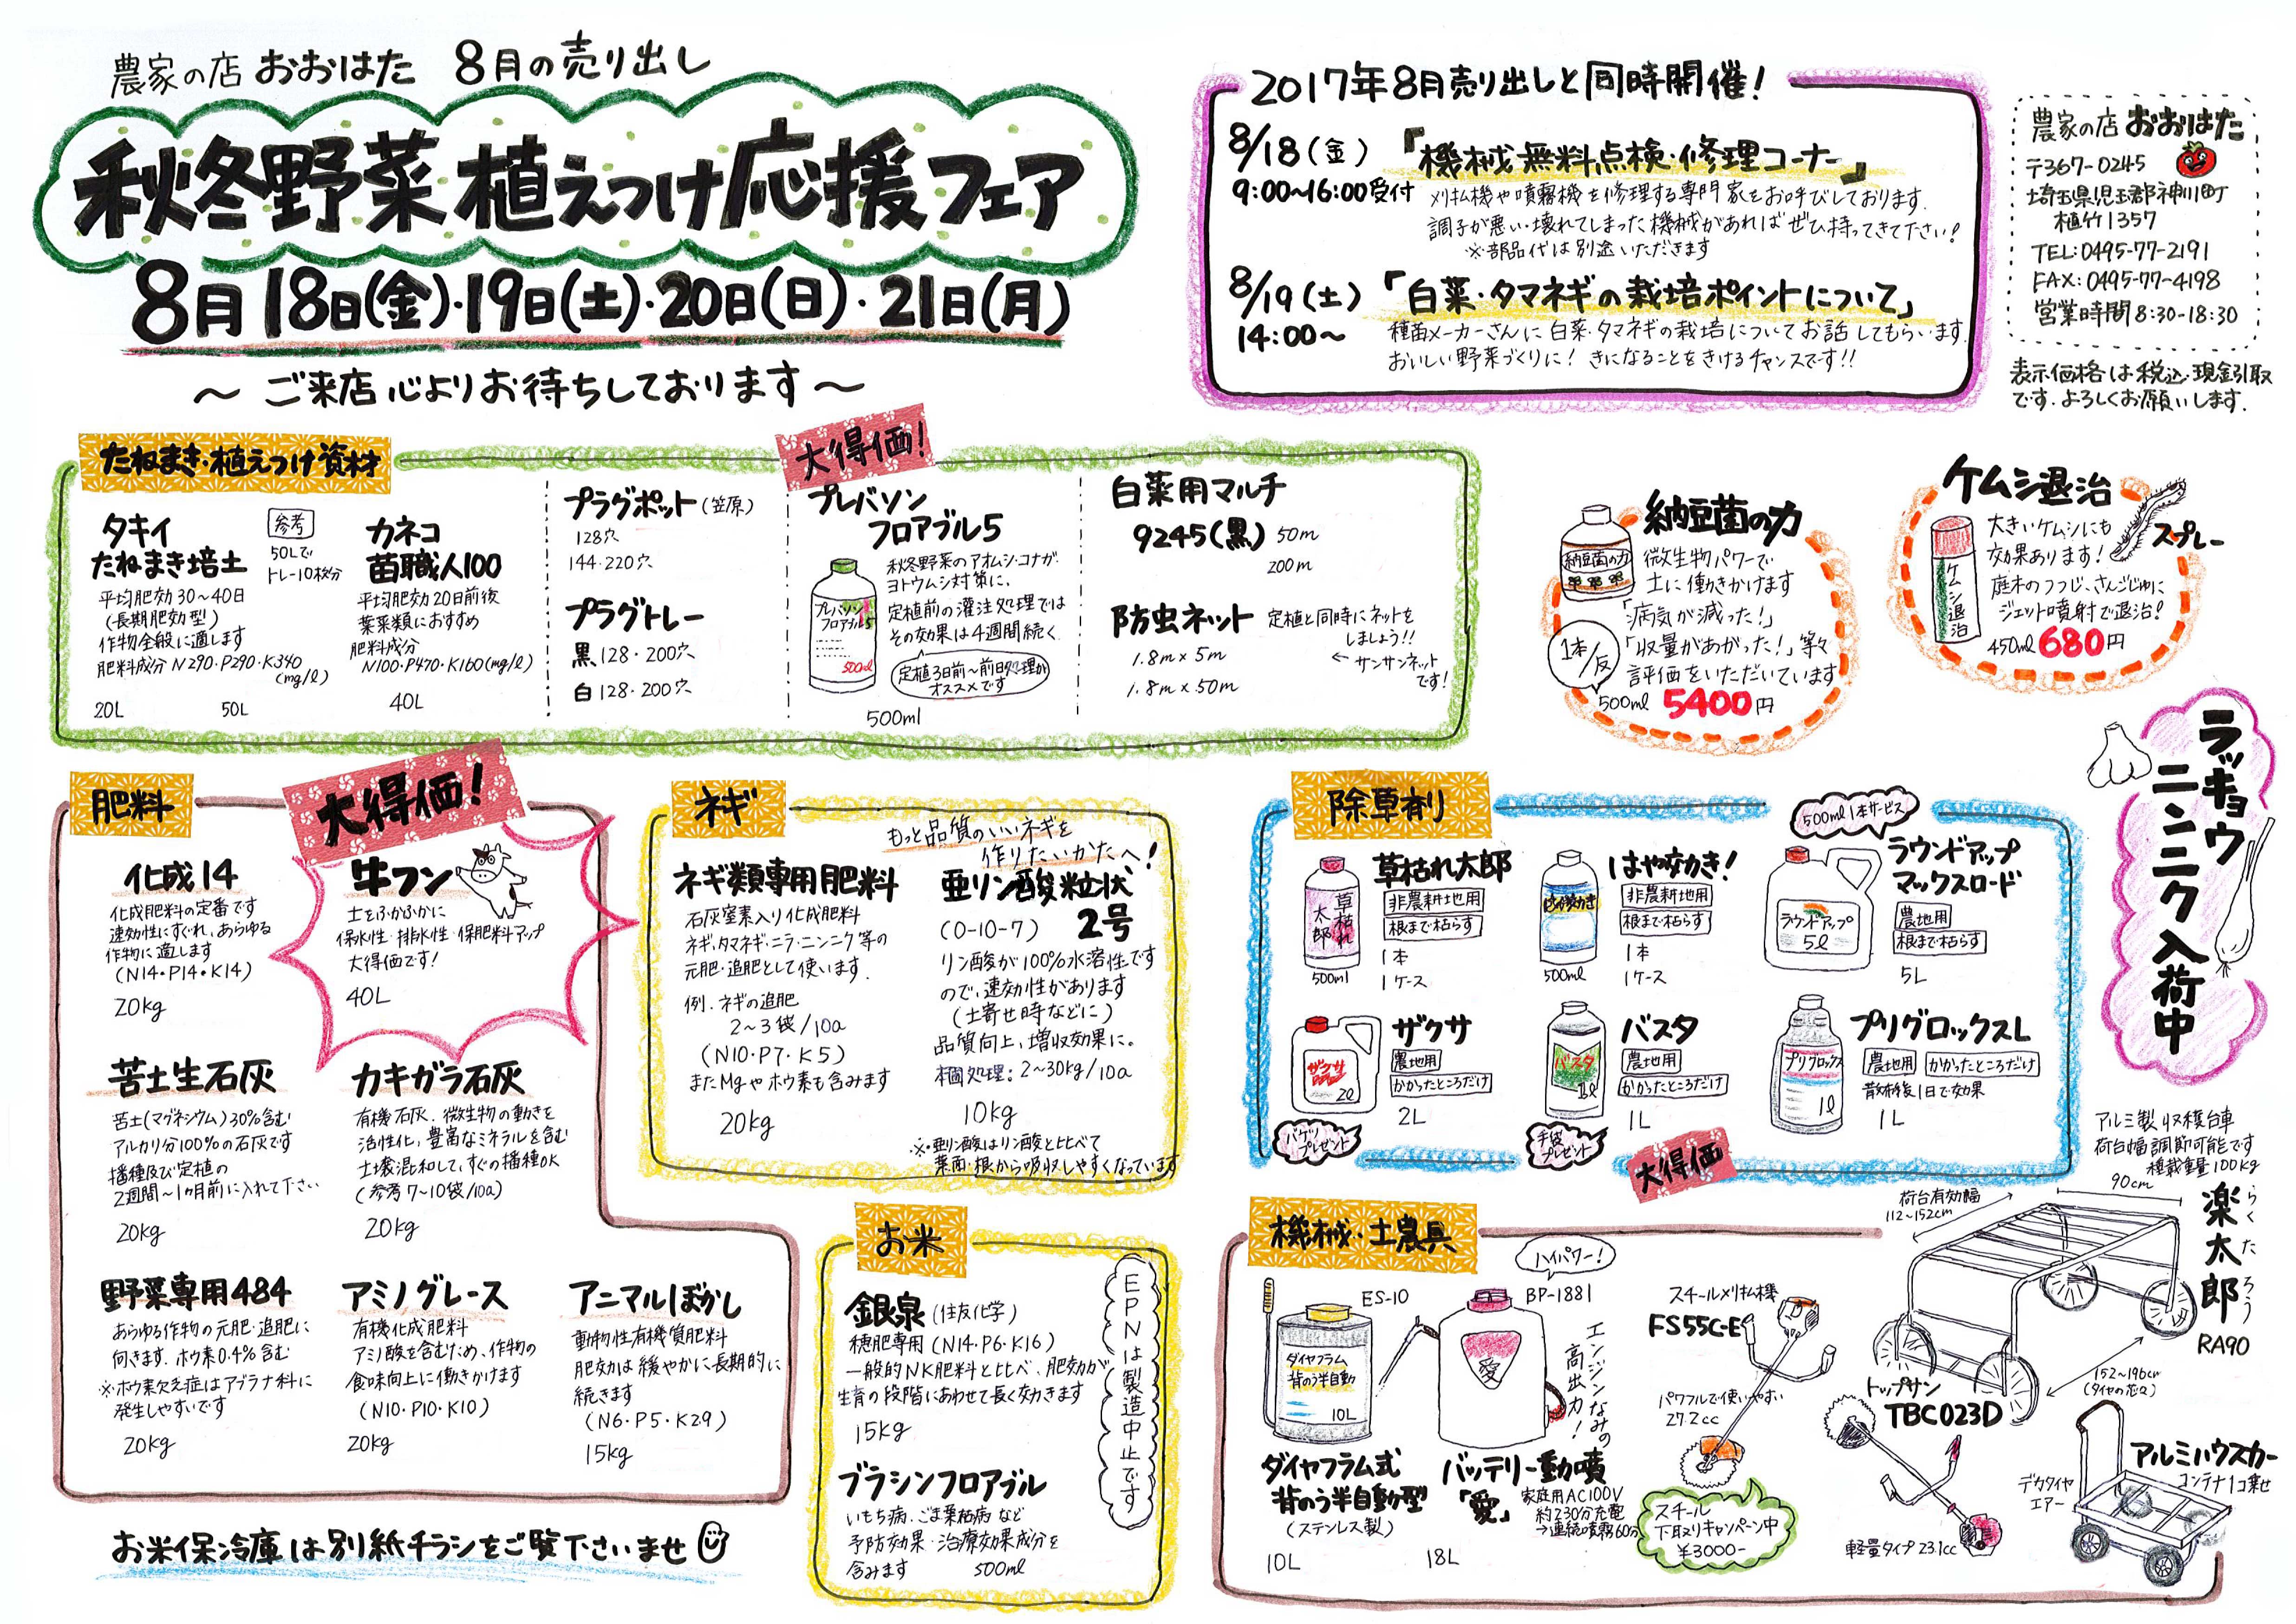 農家の店 おおはた 8月の売り出し
秋冬野菜 植えつけ応援フェア
8月18日(金)・19日(土)・20日(日)・21日(月)
〜 ご来店心よりお待ちしております 〜
2017年8月売り出しと同時開催！
8/18(金)「機械無料点検・修理コーナー」
9:00〜16:00受付 刈払機や噴霧機を修理する専門家をお呼びしております。
調子が悪い・壊れてしまった機械があればぜひ持ってきて下さい！
※部品代は別途いただきます
8/19(土)「白菜・タマネギの栽培ポイントについて」
14:00〜 種苗メーカーさんに白菜・タマネギの栽培についてお話してもらいます。
おいしい野菜づくりに！きになることをきけるチャンスです!!
農家の店 おおはた
〒367-0245
埼玉県児玉郡神川町
植竹1357
TEL:0495-77-2191
FAX:0495-77-4198
営業時間8:30-18:30
表示価格は税込・現金引取
です。よろしくお願いします。
たねまき・植えつけ資材
タキイ
たねまき培土
参考
50Lで
トレー10枚分
平均肥効30〜40日
(長期肥効型)
作物全般に適します
肥料成分 N290・P290・K340
(mg/l)
20L 50L
カネコ
苗職人100
平均肥効20日前後
葉菜類におすすめ
肥料成分
N100・P470・K160(mg/l)
40L
プラグポット(笠原)
128穴
144・220穴
プラグトレー
黒 128・200穴
白 128・200穴
大得価！
プレバソン
フロアブル5
プレバソン
フロアブル5
500ml
秋冬野菜のアオムシ・コナガ・
ヨトウムシ対策に、
定植前の灌注処理では
その効果は4週間続く
定植3日前〜前日処理が
オススメです
500ml
白菜用マルチ
9245(黒) 50m
200m
防虫ネット 定植と同時にネットを
しましょう!!
1.8m×5m
1.8m×50m
←サンサンネット
です！
納豆菌の力
納豆菌の力
微生物パワーで
土に働きかけます
「病気が減った！」
「収量があがった！」等々
評価をいただいています
1本/反
500ml 5400円
ケムシ退治
スプレー
ケムシ退治
大きいケムシにも
効果あります！
庭木のつつじ、さんごじゅに
ジェット噴射で退治！
450ml 680円
ラッキョウ
ニンニク入荷中
肥料
大得価！
化成14
化成肥料の定番です
速効性にすぐれ、あらゆる
作物に適します
(N14・P14・K14)
20kg
牛フン
土をふかふかに
保水性・排水性・保肥料アップ
大得価です！
40L
苦土生石灰
苦土(マグネシウム)30%含む
アルカリ分100%の石灰です
播種及び定植の
2週間〜1ヶ月前に入れて下さい
20kg
カキガラ石灰
有機石灰、微生物の動きを
活性化、豊富なミネラルを含む
土壌混和して、すぐの播種OK
(参考7〜10袋/10a)
20kg
野菜専用484
あらゆる作物の元肥・追肥に
向きます。ホウ素0.4%含む
※ホウ素欠乏症はアブラナ科に
発生しやすいです
20kg
アミノグレース
有機化成肥料
アミノ酸を含むため、作物の
食味向上に働きかけます
(N10・P10・K10)
20kg
アニマルぼかし
動物性有機質肥料
肥効は緩やかに長期的に
続きます
(N6・P5・K29)
15kg
お米保冷庫は別紙チラシをご覧下さいませ
ネギ
もっと品質のいいネギを
作りたいかたへ！
ネギ類専用肥料
石灰窒素入り化成肥料
ネギ・タマネギ・ニラ・ニンニク等の
元肥・追肥として使います。
例. ネギの追肥
2〜3袋/10a
(N10・P7・K5)
またMgやホウ素も含みます
20kg
亜リン酸粒状
2号
(0-10-7)
リン酸が100%水溶性です
ので、速効性があります
(土寄せ時などに)
品質向上、増収効果に。
本圃処理：2〜30kg/10a
10kg
※・亜リン酸はリン酸と比べて
葉面・根から吸収しやすくなっています
お米
銀泉(住友化学)
穂肥専用(N14・P6・K16)
一般的NK肥料と比べ、肥効が
生育の段階にあわせて長く効きます
15kg
EPNは製造中止です
ブラシンフロアブル
いもち病、ごま葉枯病など
予防効果・治療効果成分を
含みます 500ml
除草剤
草枯れ太郎
草枯れ
太郎
500ml
非農耕地用
根まで枯らす
1本
1ケース
はや効き！
はや効き
500ml
非農耕地用
根まで枯らす
1本
1ケース
500ml 1本サービス
ラウンドアップ
マックスロード
ラウンドアップ
5l
農地用
根まで枯らす
5L
ザクサ
ザクサ
2l
農地用
かかったところだけ
2L
バケツ
プレゼント
バスタ
バスタ
1l
農地用
かかったところだけ
1L
手袋
プレゼント
プリグロックスL
プリグロックス
1l
農地用 かかったところだけ
散布後1日で効果
1L
大得価
機械・土農具
ES-10
ダイヤフラム
背のう半自動
10L
ダイヤフラム式
背のう半自動型
(ステンレス製)
10L
ハイパワー！
BP-1881
愛
エンジンなみの
高出力！
バッテリー動噴
「愛」
家庭用AC100V
約230分充電
→連続噴霧60分
18L
スチール刈払機
FS55C-E
パワフルで使いやすい
27.2cc
スチール
下取りキャンペーン中
¥3000-
トップサン
TBC023D
軽量タイプ 23.1cc
アルミ製収穫台車
荷台幅調節可能です
積載重量100kg
90cm
荷台有効幅
112〜152cm
楽太郎
らくたろう
RA90
152〜196cm
(タイヤの芯々)
アルミハウスカー
コンテナ1コ乗せ
デカタイヤ
エアー